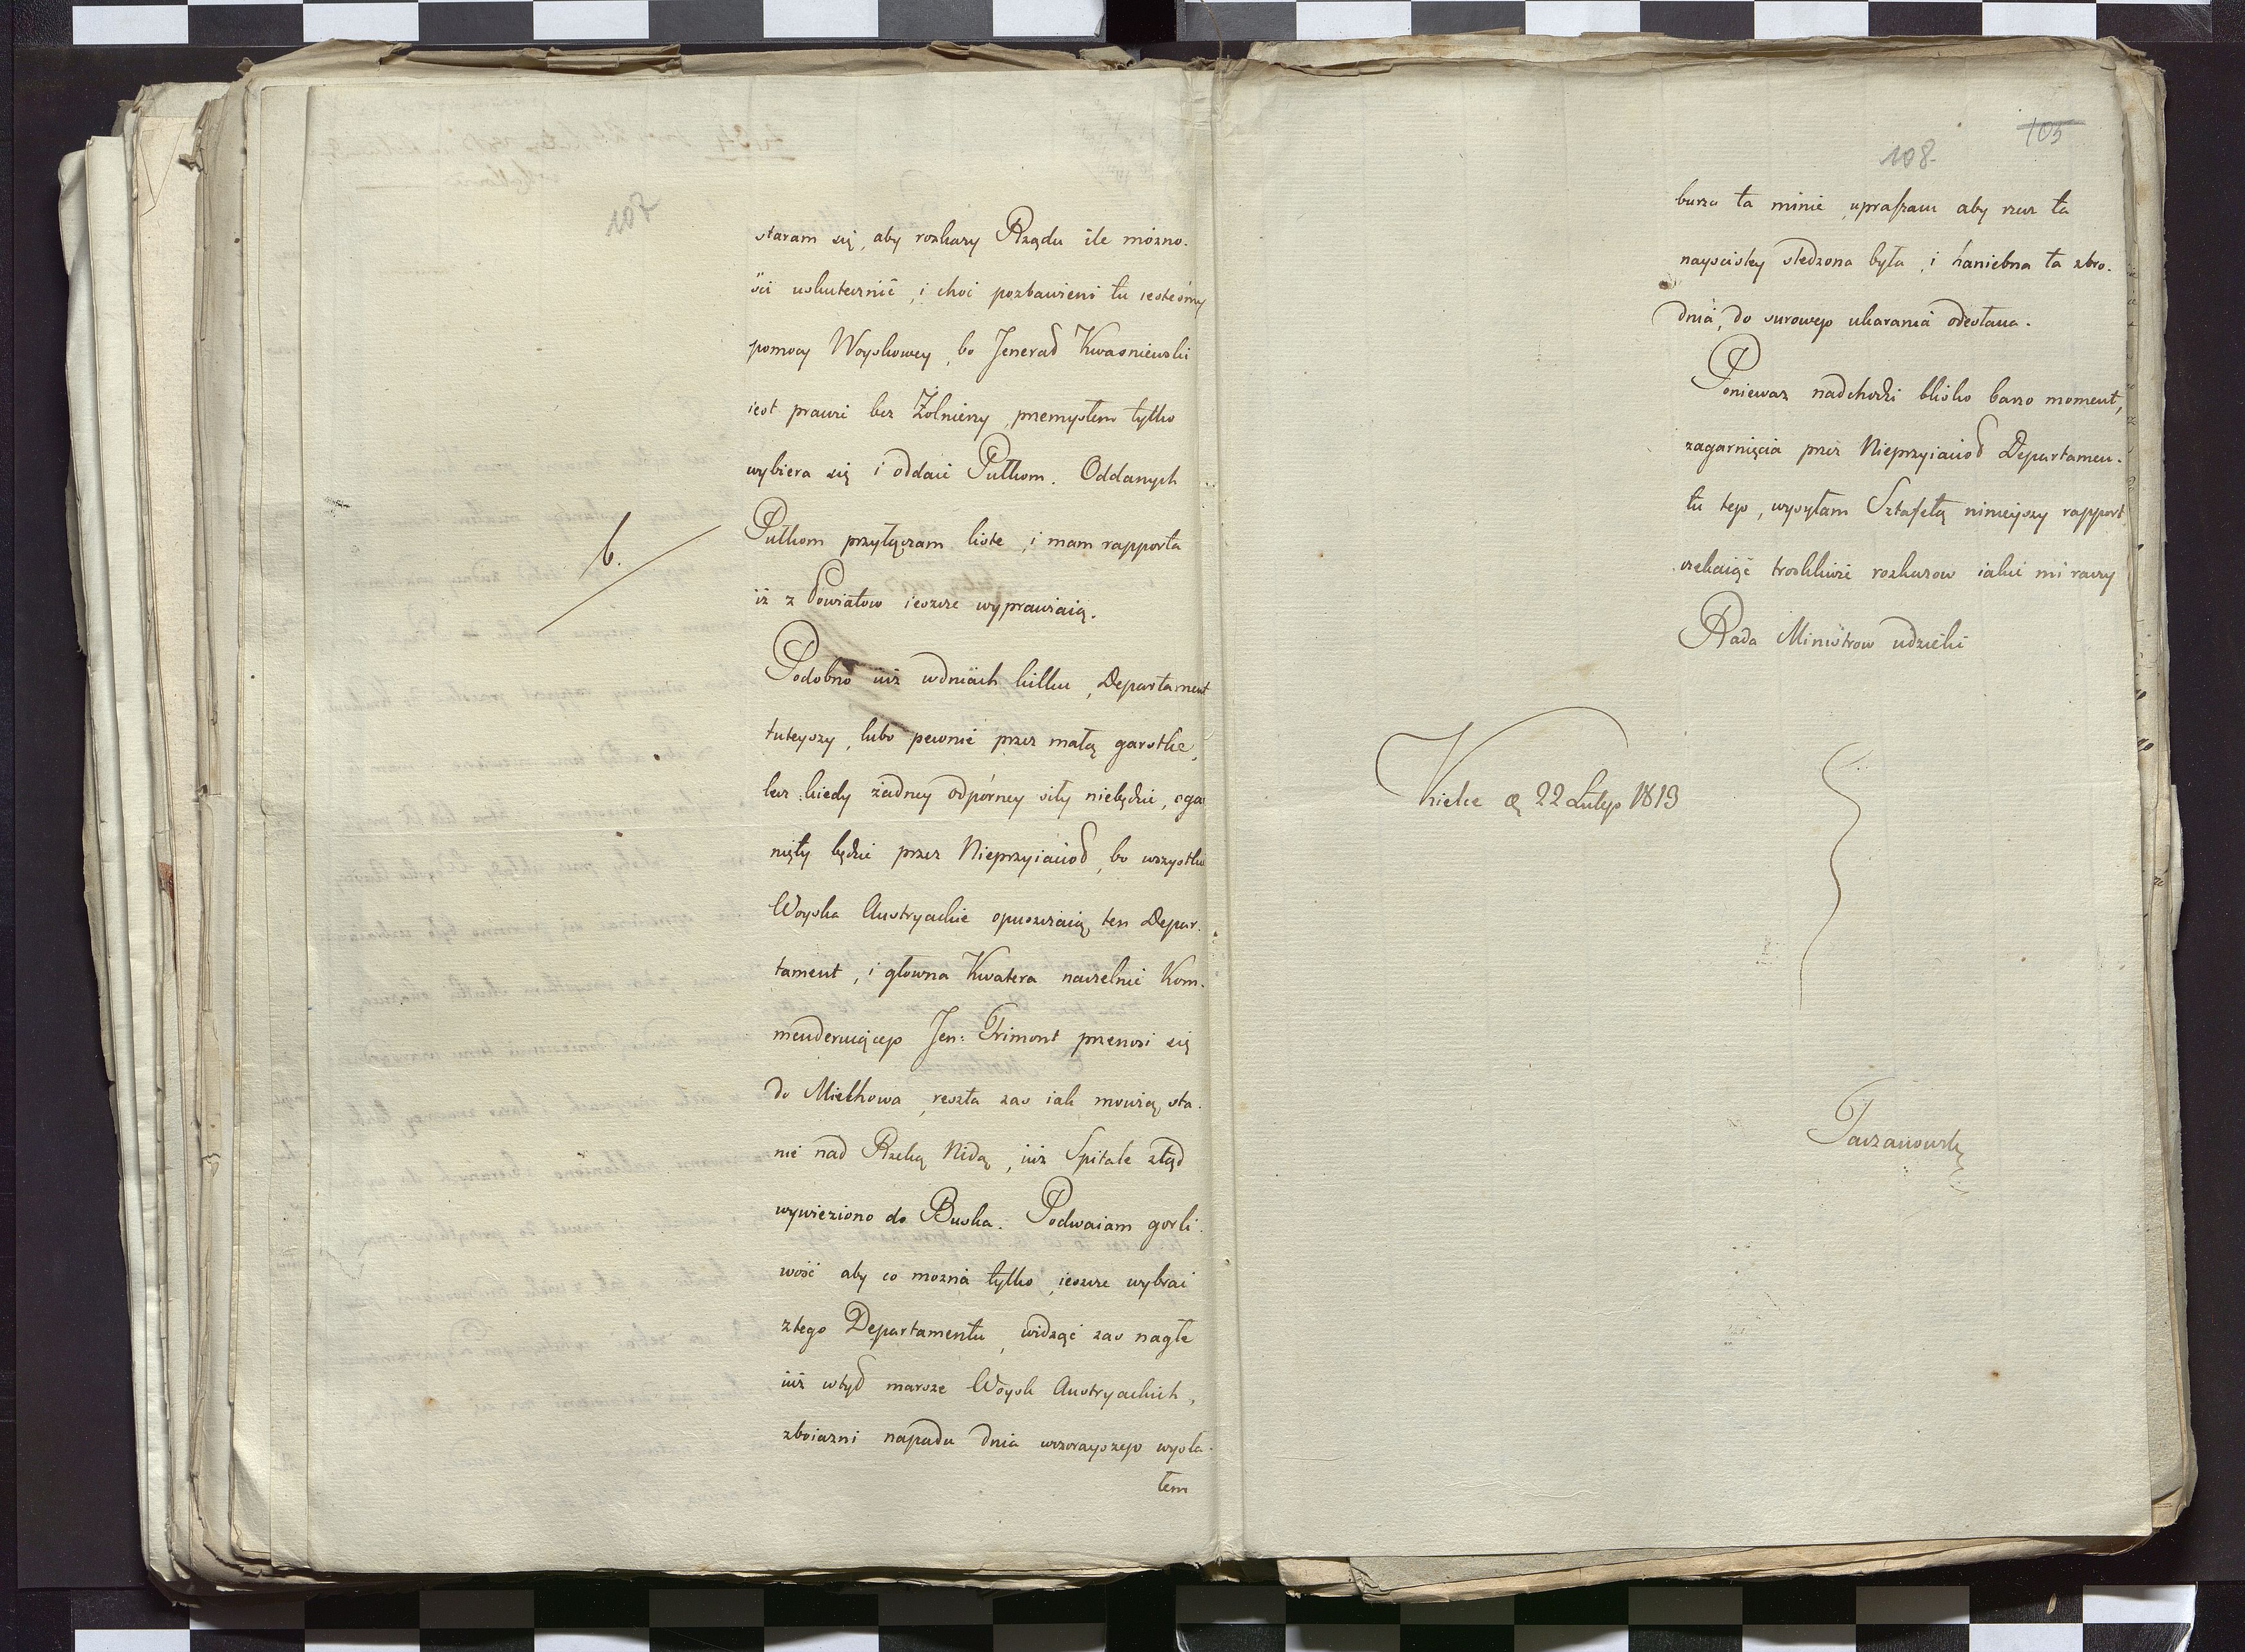 107
staram się, aby rozkazy Rządu ile możno-
ści uskutecznić, i choć pozbawieni tu iesteśmy
pomocy Woyskowey, bo Jenerał Kwasniewski
iest prawie bez Żolnierzy, przemysłem tylko
wybiera się i oddaie Pułkom. Oddanych
b.
Pułkom przyłączam liste, i mam rapporta
iż z Powiatow ieszcze wyprawiaią.
Podobno iuż wdniach kilku, Departament
tuteyszy, lubo pewnie przez małą garstkę,
lecz kiedy żadney odpórney siły niebędzie, oga
nięty będzie przez Nieprzyiacioł, bo wszystkie
Woyska Austryackie opuszczaią ten Depar-
tament, i głowna Kwatera naczelnie Kom-
menderuiącego Jen: Frimont przenosi się
do Miechowa, reszta zas iak mowią sta-
nie nad Rzeką Nidą, iuż Spitale ztąd
wywieziono do Buska. Podwaiam gorli-
wość aby co można tylko, ieszcze wybrać
ztego Departamentu, widząc zas nagłe
iuż wtył marsze Woysk Austryackich,
zboiazni napadu dnia wczorayszego wysła-
łem
105
108.
burza ta minie, upraszam aby rzecz ta
nayscisley sledzona była, i haniebna ta zbro-
dnia, do surowego ukarania odesłana.
Poniewaz nadchodzi blisko barzo moment,
zagarnięcia przez Nieprzyiacioł Departamen-
tu tego, wysyłam Sztafetą ninieyszy rapport
czekaiąc troskliwie rozkazow iakie mi raczy
Rada Ministrow udzielić
Kielce d. 22 Lutego 1813
Taczanowski